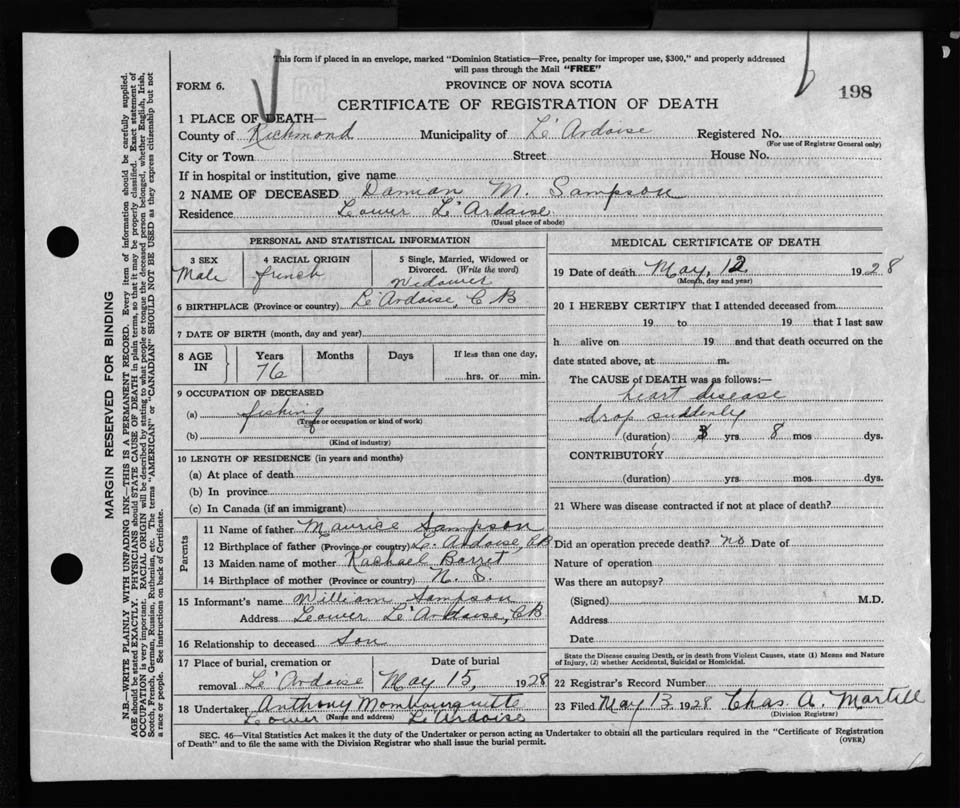 This form if placed in an envelope, marked "Dominion Statistics—Free, penalty for improper use, $300," and properly addressed
will pass through the Mail "FREE"
FORM 6.
PROVINCE OF NOVA SCOTIA
198
CERTIFICATE OF REGISTRATION OF DEATH
1 PLACE OF DEATH—
County of Richmond Municipality of L'Ardoise Registered No.
(For use of Registrar General only)
City or Town Street House No.
If in hospital or institution, give name
2 NAME OF DECEASED Damian M. Sampson
Residence Lower L'Ardoise
(Usual place of abode)
PERSONAL AND STATISTICAL INFORMATION
3 SEX 4 RACIAL ORIGIN 5 Single, Married, Widowed or
Divorced. (Write the word)
Male french Widower
6 BIRTHPLACE (Province or country) L'Ardoise, C B
7 DATE OF BIRTH (month, day and year)
8 AGE IN Years Months Days If less than one day,
76 hrs. or min.
9 OCCUPATION OF DECEASED
(a) fishing
(Trade or occupation or kind of work)
(b)
(Kind of industry)
10 LENGTH OF RESIDENCE (in years and months)
(a) At place of death
(b) In province
(c) In Canada (if an immigrant)
Parents
11 Name of father Maurice Sampson
12 Birthplace of father (Province or country) L'Ardoise, CB
13 Maiden name of mother Rachael Barret
14 Birthplace of mother (Province or country) N. S.
15 Informant's name William Sampson
Address Lower L'Ardoise, CB
16 Relationship to deceased Son
17 Place of burial, cremation or Date of burial
removal L'Ardoise May 15, 1928
18 Undertaker Anthony Mombourquette
(Name and address)
Lower L'Ardoise
MEDICAL CERTIFICATE OF DEATH
19 Date of death May, 12 1928
(Month, day and year)
20 I HEREBY CERTIFY that I attended deceased from
19 to 19 that I last saw
h alive on 19 and that death occurred on the
date stated above, at m.
The CAUSE of DEATH was as follows:—
heart disease
drop suddenly
(duration) 3 yrs 8 mos dys.
CONTRIBUTORY
(duration) yrs. mos dys.
21 Where was disease contracted if not at place of death?
Did an operation precede death? no Date of
Nature of operation
Was there an autopsy?
(Signed) M.D.
Address
Date
State the Disease causing Death, or in death from Violent Causes, state (1) Means and Nature
of Injury, (2) whether Accidental, Suicidal or Homicidal.
22 Registrar's Record Number
23 Filed May 13 1928 Chas. A. Martell
(Division Registrar)
SEC. 46—Vital Statistics Act makes it the duty of the Undertaker or person acting as Undertaker to obtain all the particulars required in the "Certificate of Registration
of Death" and to file the same with the Division Registrar who shall issue the burial permit.
(OVER)
MARGIN RESERVED FOR BINDING
N.B.—WRITE PLAINLY WITH UNFADING INK—THIS IS A PERMANENT RECORD. Every item of information should be carefully supplied.
AGE should be stated EXACTLY. PHYSICIANS should STATE CAUSE OF DEATH in plain terms, so that it may be properly classified. Exact statement of
OCCUPATION is very important. RACIAL ORIGIN will be described by stating to what people or tongue the deceased person belonged, whether English, Irish,
Scotch, French, German, Russian, Ruthenian, etc. The terms "AMERICAN" or "CANADIAN" SHOULD NOT BE USED as they express citizenship but not
a race or people. See instructions on back of Certificate.